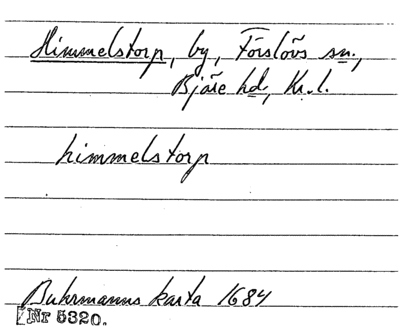 Himmelstorp, by, Förslövs sn.,
Bjäre hd, Kr.l.
himmelstorp
Buhrmanns karta 1684
Nr 5320.